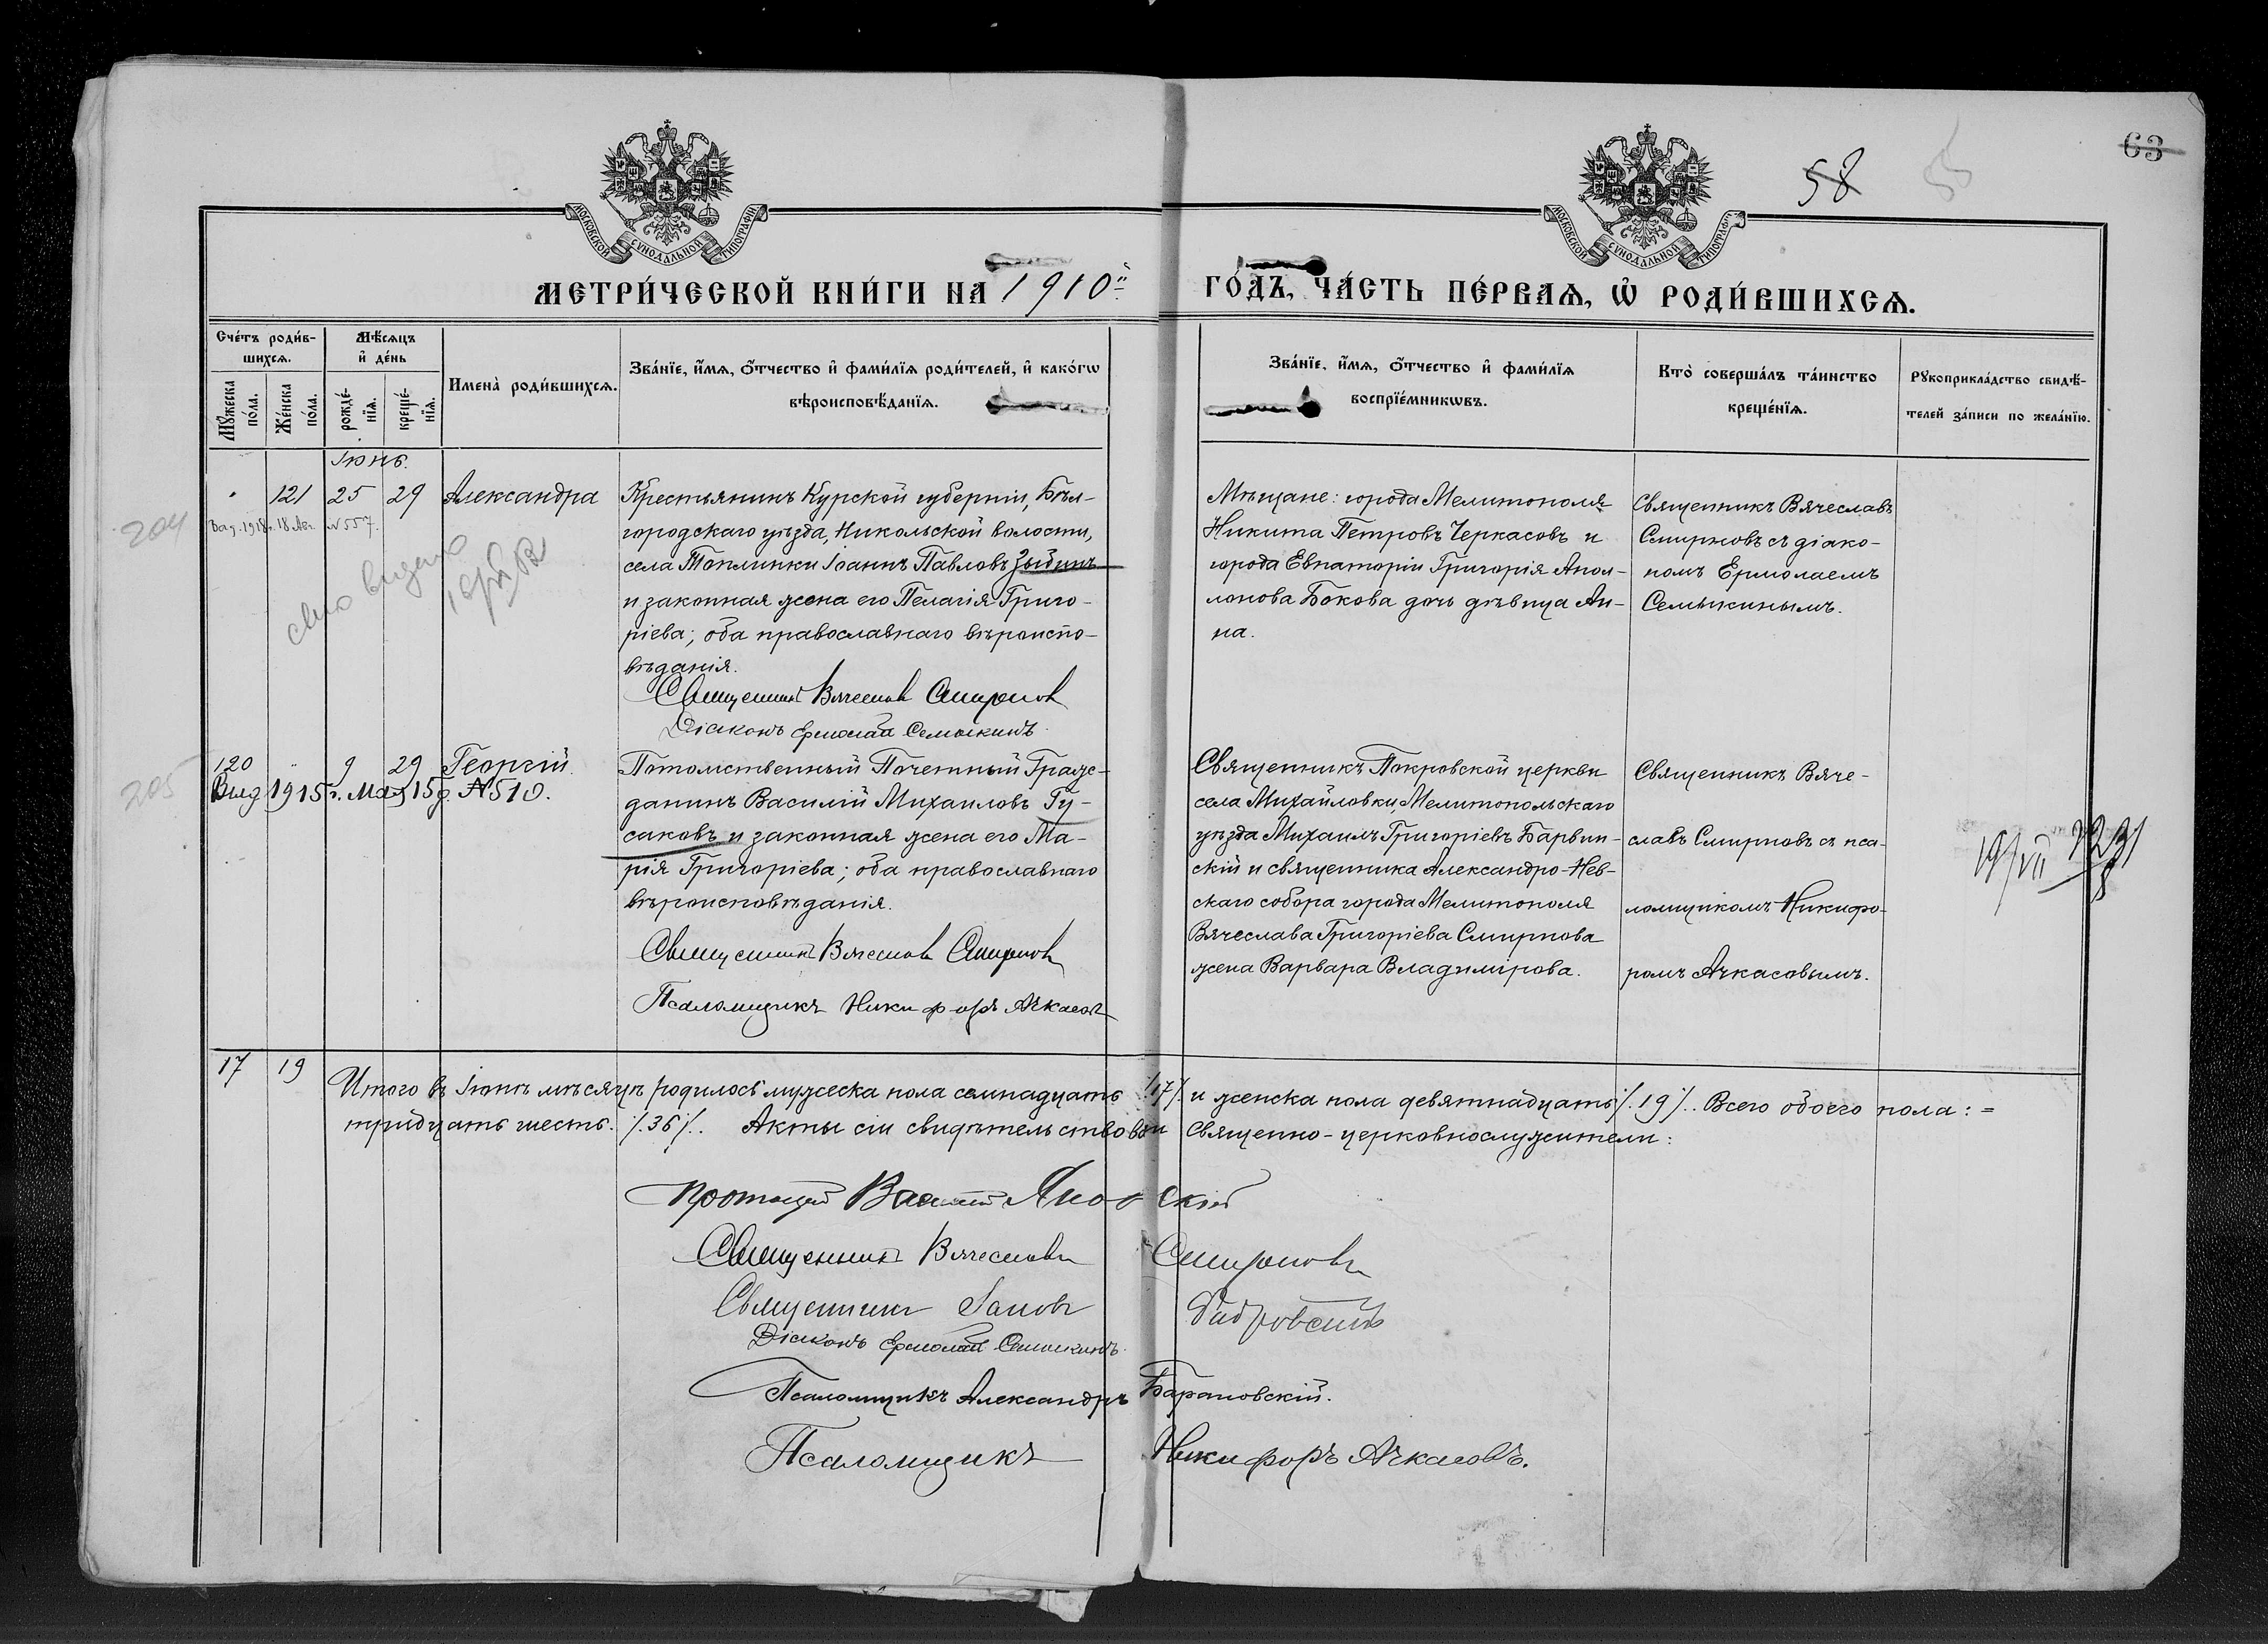 63
58
55
МОСКОВСКОЙ СѴНОДАЛЬНОЙ ТИПОГРАФІИ
МОСКОВСКОЙ СѴНОДАЛЬНОЙ ТИПОГРАФІИ
МЕТРИ́ЧЕСКОЙ КНИ́ГИ НА 1910й ГО́ДЪ, ЧА́СТЬ ПЕ́РВАѦ, Ѡ РОДИ́ВШИХСѦ.
Сче́тъ роди́в-
шихсѧ.
Мѣ́сѧцъ
и де́нь
Мꙋ́жеска
по́ла.
Же́нска
по́ла.
рожде́-
нїѧ.
креще́-
нїѧ.
Имена̀ роди́вшихсѧ.
Зва́нїе, и́мѧ, о́тчество и фами́лїѧ роди́телей, и како́гѡ
вѣроисповѣ́данїѧ.
Зва́нїе, и́мѧ, о́тчество и фами́лїѧ
воспрїе́мникѡвъ.
Кто̀ соверша́лъ та́инство
креще́нїѧ.
Рꙋкоприкла́дство свидѣ́-
телей за́писи по жела́нїю.
Іюнь.
204
121 25 29 Александра
1918 г. 18 Авг. №557.
Крестьянинъ Курской губерніи, Бѣл-
городскаго уѣзда, Никольской волости,
села Топлинки Іоаннъ Павловъ Зыбинъ
и законная жена его Пелагія Григо-
ріева; оба православнаго вѣроиспо-
вѣданія.
Священникъ Вячеславъ Смирновъ
Діаконъ Ермолай Семыкинъ.
Мѣщане: города Мелитополя
Никита Петровъ Черкасовъ и
города Евпаторіи Григорія Апол-
лонова Бокова дочь дѣвица Ан-
на.
Священникъ Вячеславъ
Смирновъ съ діако-
номъ Ермолаемъ
Семыкинымъ.
205
120 " 9 29 Георгій.
Выд 1915 г. Мая 15 д. №510.
Потомственный Почетный Граж-
данинъ Василій Михаиловъ Гу-
саковъ и законная жена его Ма-
рія Григоріева; оба православнаго
вѣроисповѣданія.
Священникъ Вячеславъ Смирновъ
Псаломщикъ Никифоръ Ачкасовъ
Священникъ Покровской церкви
села Михайловки, Мелитопольскаго
уѣзда Михаилъ Григоріевъ Барвин-
скій и священника Александро-Нев-
скаго собора города Мелитополя
Вячеслава Григоріева Смирнова
жена Варвара Владимірова.
Священникъ Вяче-
славъ Смирновъ съ пса-
ломщикомъ Никифо-
ромъ Ачкасовымъ.
17 19
Итого въ Іюнѣ мѣсяцѣ родилось мужеска пола семнадцать /17/. и женска пола девятнадцать /.19/.. Всего обоего пола: =
тридцать шесть. /.36/.. Акты сіи свидѣтельствовали Священно-церковнослужители:
Протоіерей Василій Яновскій
Священникъ Вячеславъ Смирновъ
Священникъ
Діаконъ Ермолай Семыкинъ.
Псаломщикъ Александръ Барановскій.
Псаломщикъ Никифоръ Ачкасовъ.